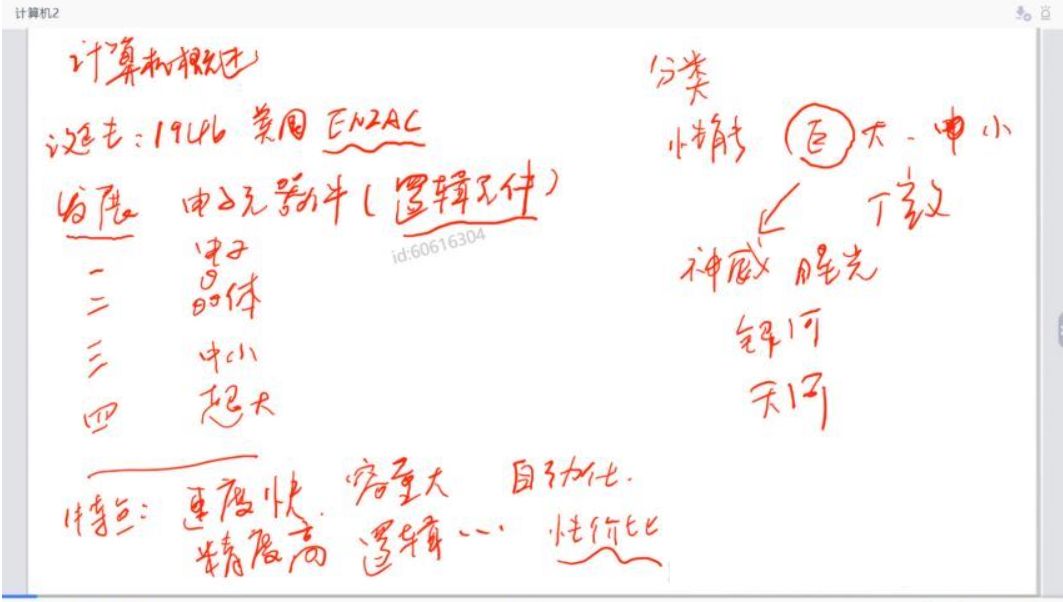 计算机2
计算机概述
诞生:1946 美国 ENIAC
发展 电子元器件(逻辑元件)
一 电子
二 晶体
三 中小
四 超大
特点: 速度快. 容量大 自动化.
精度高 逻辑… 性价比
分类
性能 巨 大 中 小
微
神威 曙光
银河
天河
id:60616304